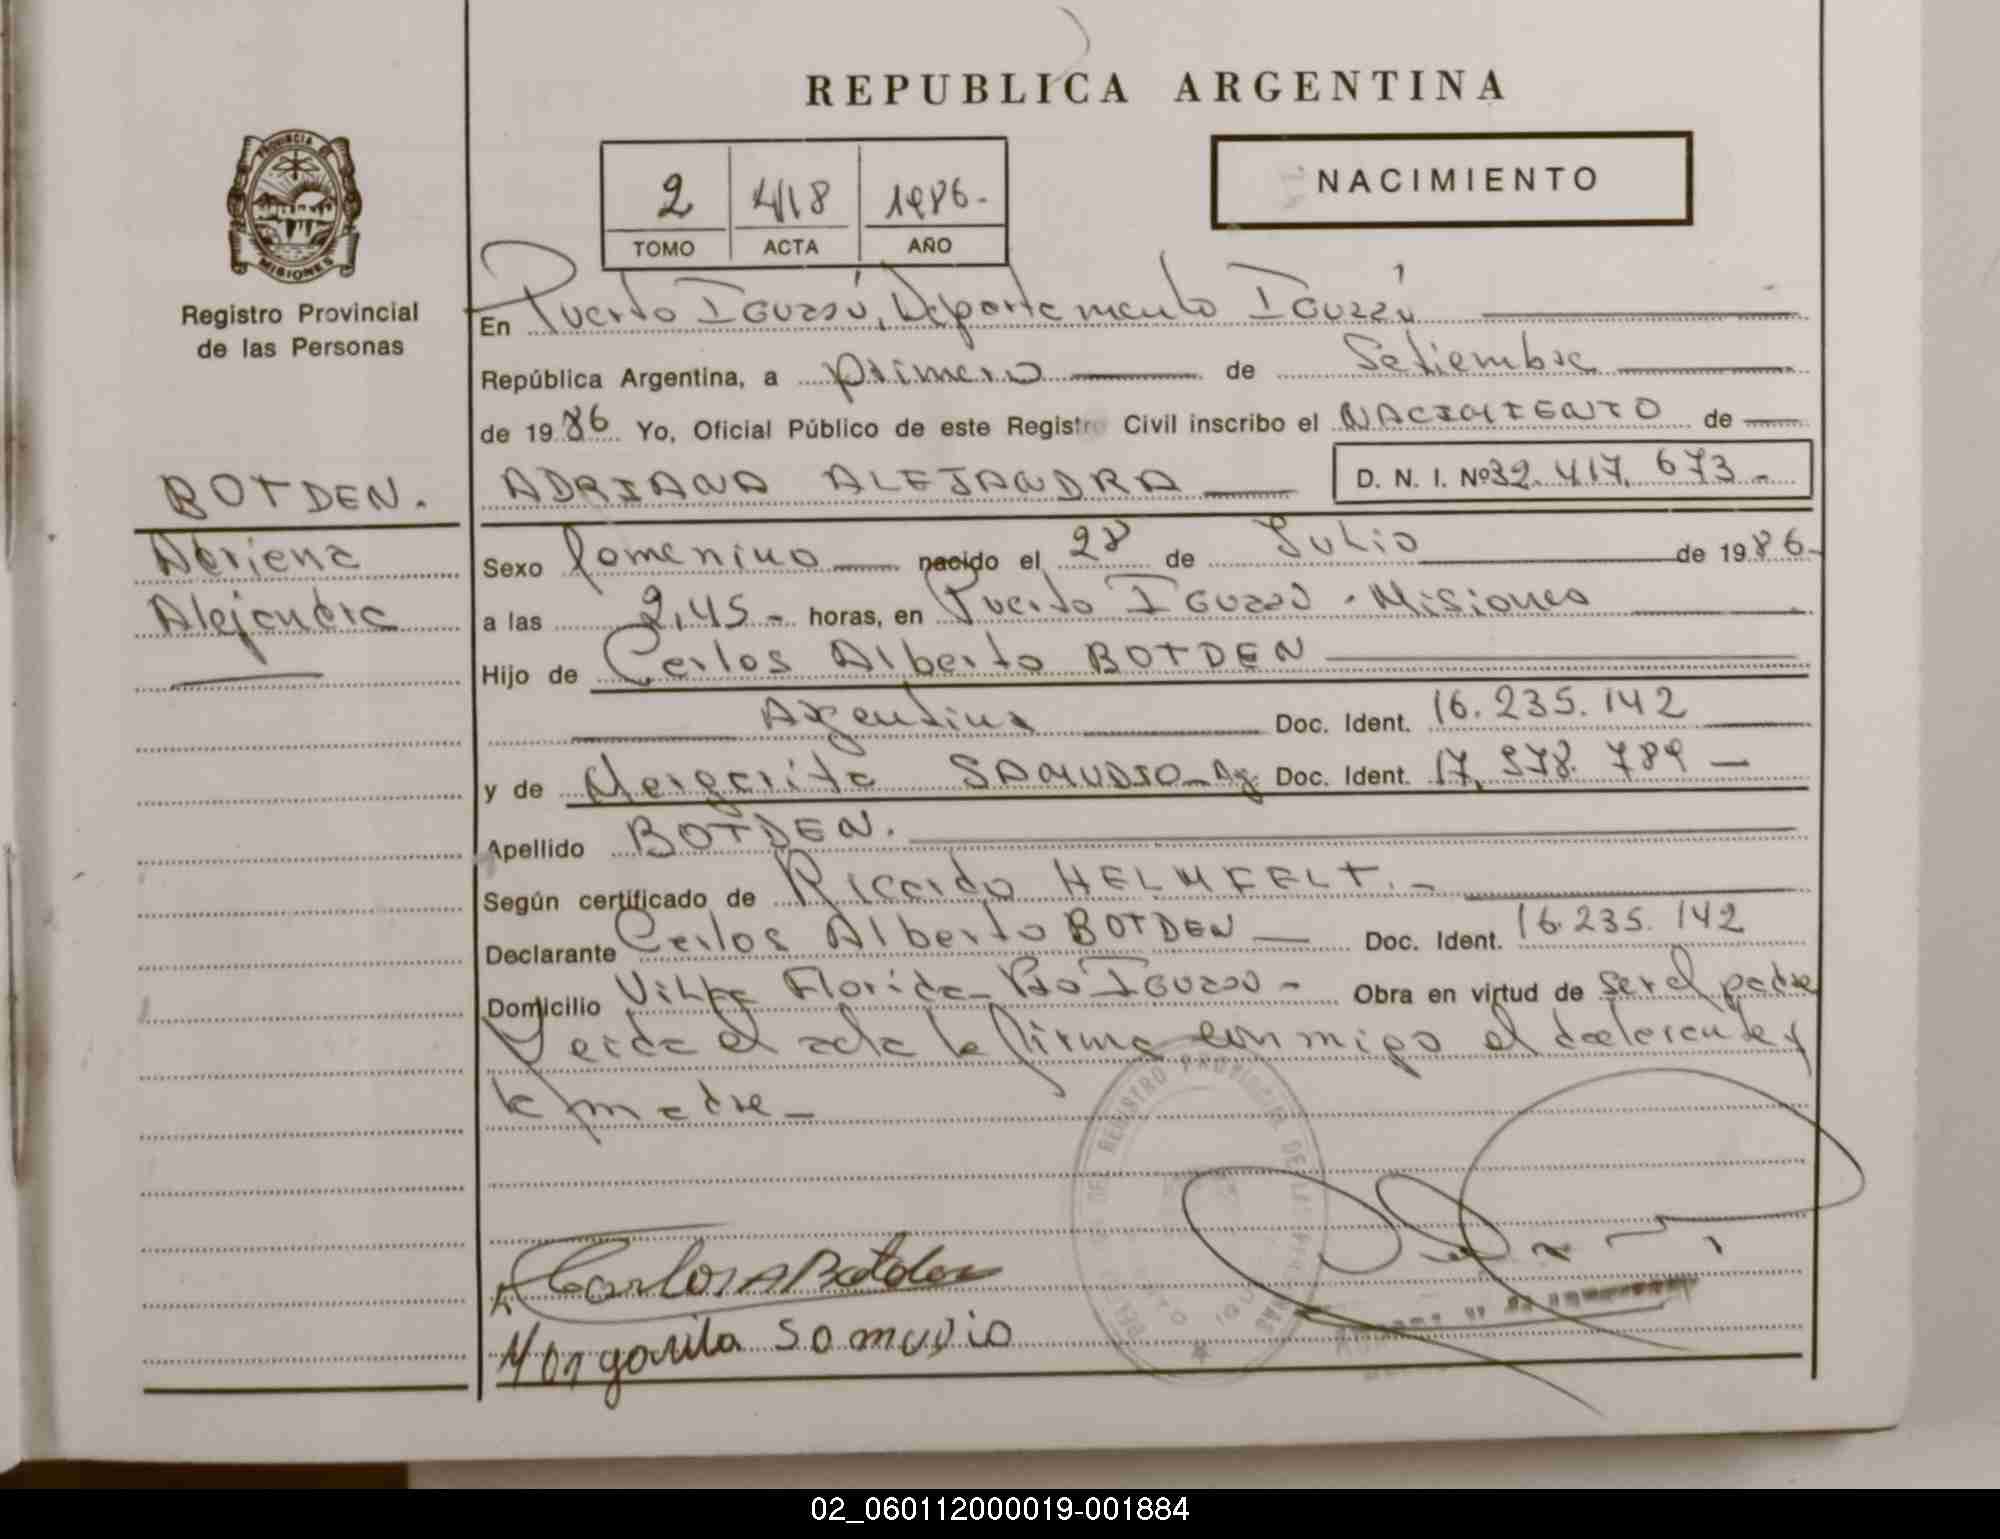 REPUBLICA ARGENTINA
PROVINCIA DE
MISIONES
Registro Provincial
de las Personas
2 418 1986.-
TOMO ACTA AÑO
NACIMIENTO
En Puerto Iguazú, Departamento Iguazú
República Argentina, a primero de Setiembre
de 1986 Yo, Oficial Público de este Registro Civil inscribo el NACIMIENTO de
BOTDEN.
ADRIANA ALEJANDRA D. N. I. Nº 32.417.673.-
Adriana
Alejandra
Sexo femenino nacido el 28 de Julio de 1986.-
a las 2,45 - horas, en Puerto Iguazú - Misiones
Hijo de Carlos Alberto BOTDEN
Argentina Doc. Ident. 16.235.142
y de Margarita SAMUDIO - Arg. Doc. Ident. 17.978.789 -
Apellido BOTDEN.
Según certificado de Ricardo HELMFELT. -
Declarante Carlos Alberto BOTDEN - Doc. Ident. 16.235.142
Domicilio Villa Florida - Pto Iguazú - Obra en virtud de ser el padre
Leida el acta la firma conmigo el declarante y
la madre -
REGISTRO PROVINCIAL DE LAS PERSONAS
Carlos A Botden
Margarita Samudio
02_060112000019-001884